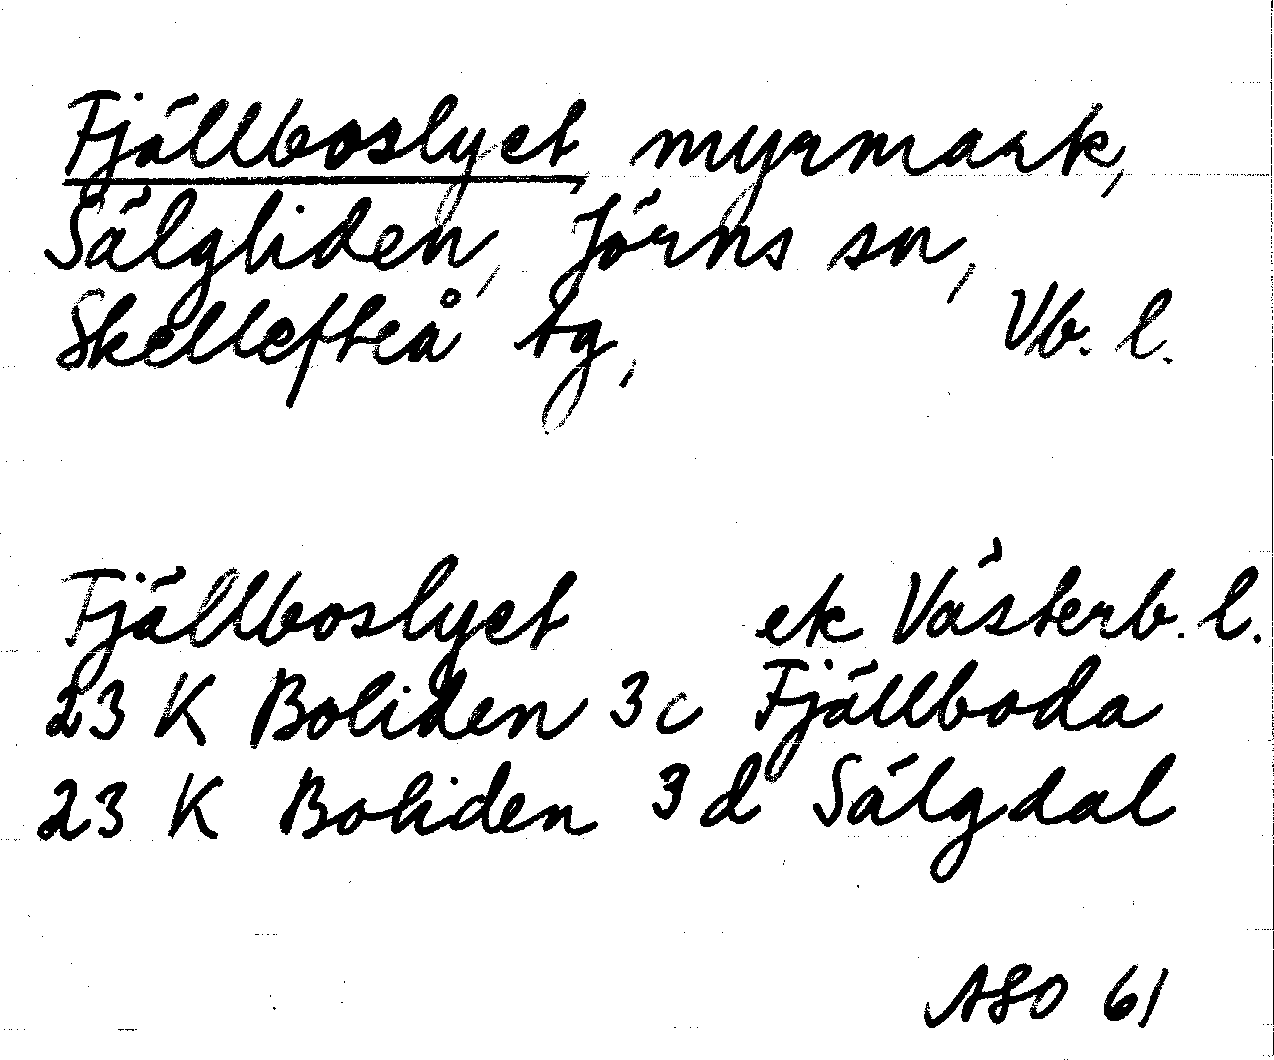 Fjällboslyet, myrmark,
Sälgliden, Jörns sn,
Skellefteå tg, Vb. l.
Fjällboslyet ek Västerb. l.
23 K Boliden 3c Fjällboda
23 K Boliden 3d Sälgdal
ASO 61